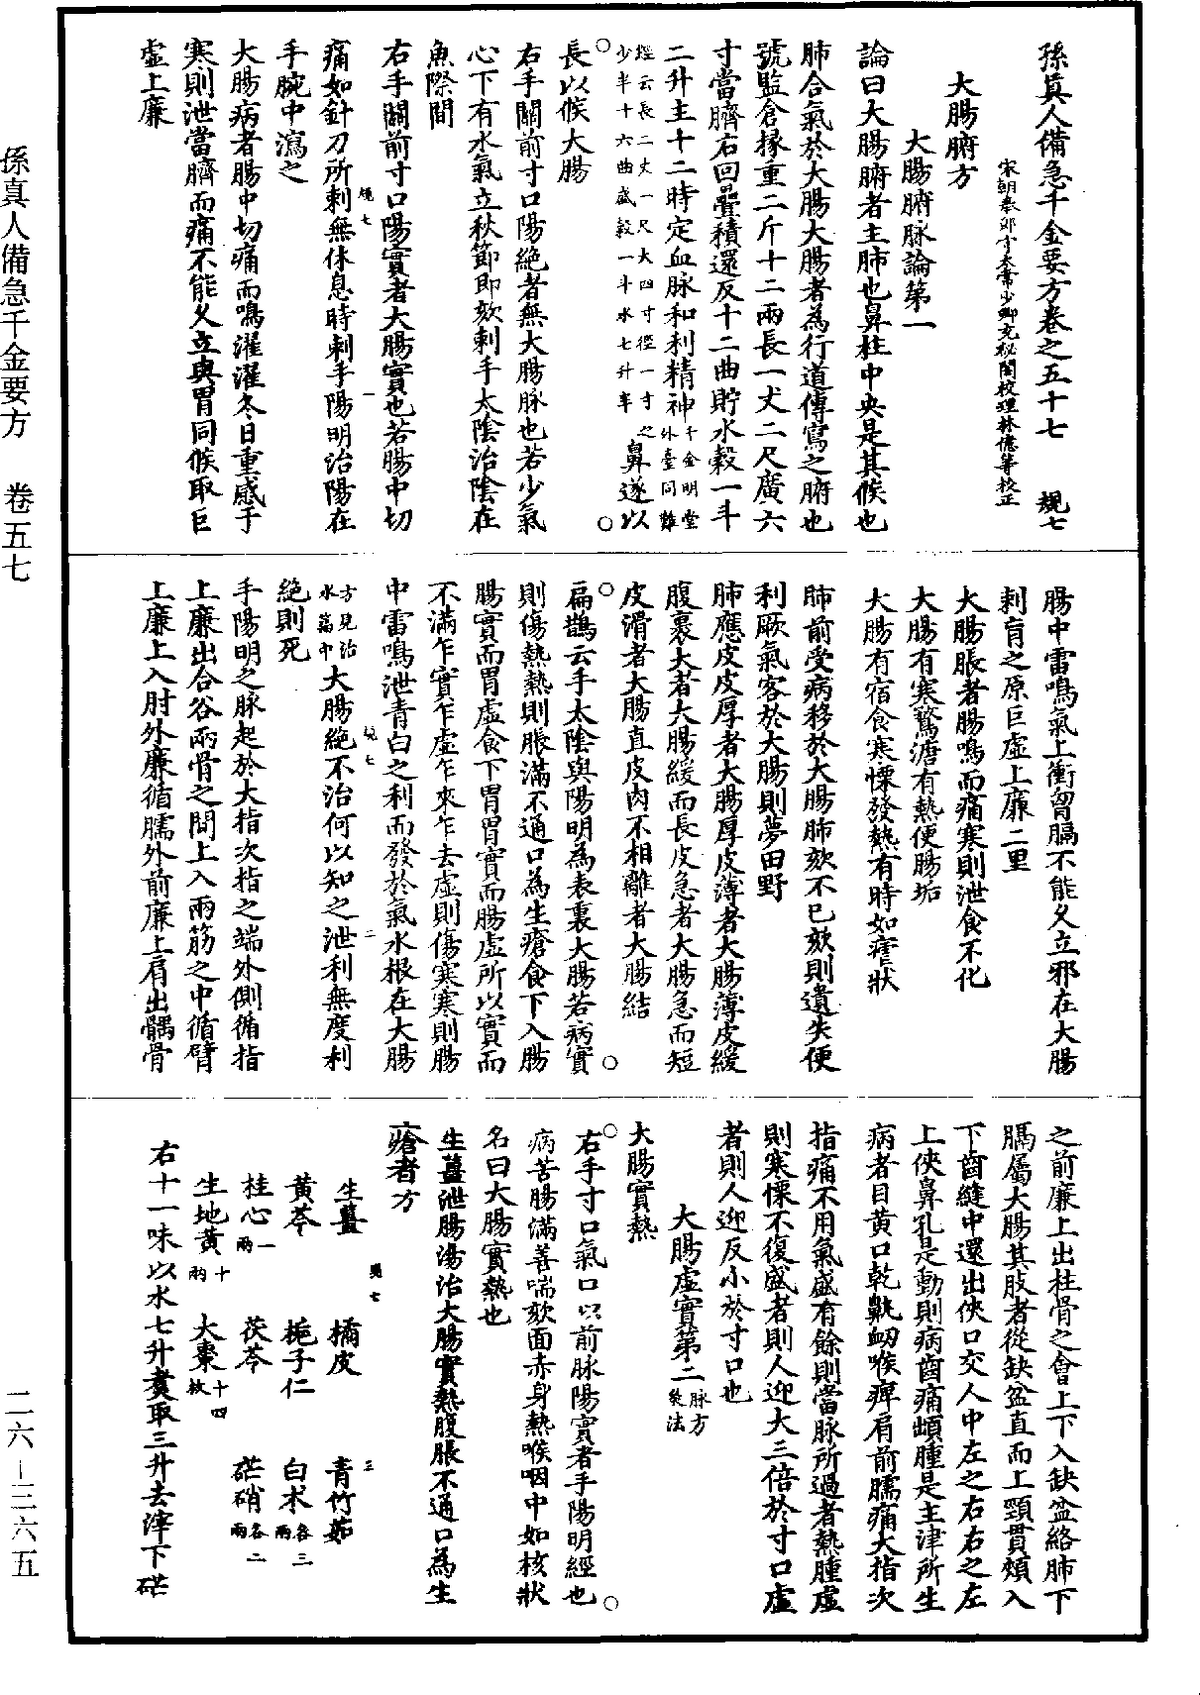 孫真人備急千金要方卷之五十七 規七
宋朝奉郎守太常少卿充秘閣校理林億等校正
大腸腑方
大腸腑脉論第一
論曰大腸腑者主肺也鼻柱中央是其候也
肺合氣於大腸大腸者為行道傳寫之腑也
號監倉掾重二斤十二兩長一丈二尺廣六
寸當臍右回疊積還反十二曲貯水穀一斗
二升主十二時定血脉和利精神千金明堂外臺同難
經云長二丈一尺大四寸徑一寸之少半十六曲盛穀一斗水七升半鼻遂以
長以候大腸
右手關前寸口陽絕者無大腸脉也若少氣
心下有水氣立秋節即欬刺手太陰治陰在
魚際間
右手關前寸口陽實者大腸實也若腸中切
規七 一
痛如針刀所刺無休息時刺手陽明治陽在
手腕中瀉之
大腸病者腸中切痛而鳴濯濯冬日重感于
寒則泄當臍而痛不能久立與胃同候取巨
虛上廉
腸中雷鳴氣上衝胷膈不能久立邪在大腸
刺肓之原巨虛上廉三里
大腸脹者腸鳴而痛寒則泄食不化
大腸有寒鶩溏有熱便腸垢
大腸有宿食寒慄發熱有時如瘧狀
肺前受病移於大腸肺欬不已欬則遺失便
利厥氣客於大腸則夢田野
肺應皮皮厚者大腸厚皮薄者大腸薄皮緩
腹裹大者大腸緩而長皮急者大腸急而短
皮滑者大腸直皮肉不相離者大腸結
扁鵲云手太陰與陽明為表裏大腸若病實
則傷熱熱則脹滿不通口為生瘡食下入腸
腸實而胃虛食下胃胃實而腸虛所以實而
不滿乍實乍虛乍來乍去虛則傷寒寒則腸
中雷鳴泄青白之利而發於氣水根在大腸
規七 二
方見治水篇中大腸絕不治何以知之泄利無度利
絕則死
手陽明之脉起於大指次指之端外側循指
上廉出合谷兩骨之間上入兩筋之中循臂
上廉上入肘外廉循臑外前廉上肩出髃骨
之前廉上出柱骨之會上下入缺盆絡肺下
膈屬大腸其肢者從缺盆直而上頸貫頰入
下齒縫中還出俠口交人中左之右右之左
上俠鼻孔是動則病齒痛䪼腫是主津所生
病者目黃口乾鼽衂喉痺肩前臑痛大指次
指痛不用氣盛有餘則當脉所過者熱腫虛
則寒慄不復盛者則人迎大三倍於寸口虛
者則人迎反小於寸口也
大腸虛實第二脉方灸法
大腸實熱
右手寸口氣口以前脉陽實者手陽明經也
病苦腸滿善喘欬面赤身熱喉咽中如核狀
名曰大腸實熱也
生薑泄腸湯治大腸實熱腹脹不通口為生
瘡者方
規七 三
生薑 橘皮 青竹茹
黃芩 梔子仁 白朮各三兩
桂心一兩 茯苓 芒硝各二兩
生地黃十兩 大棗十四枚
右十一味以水七升煑取三升去滓下芒
孫真人備急千金要方 卷五七 二六—三六五